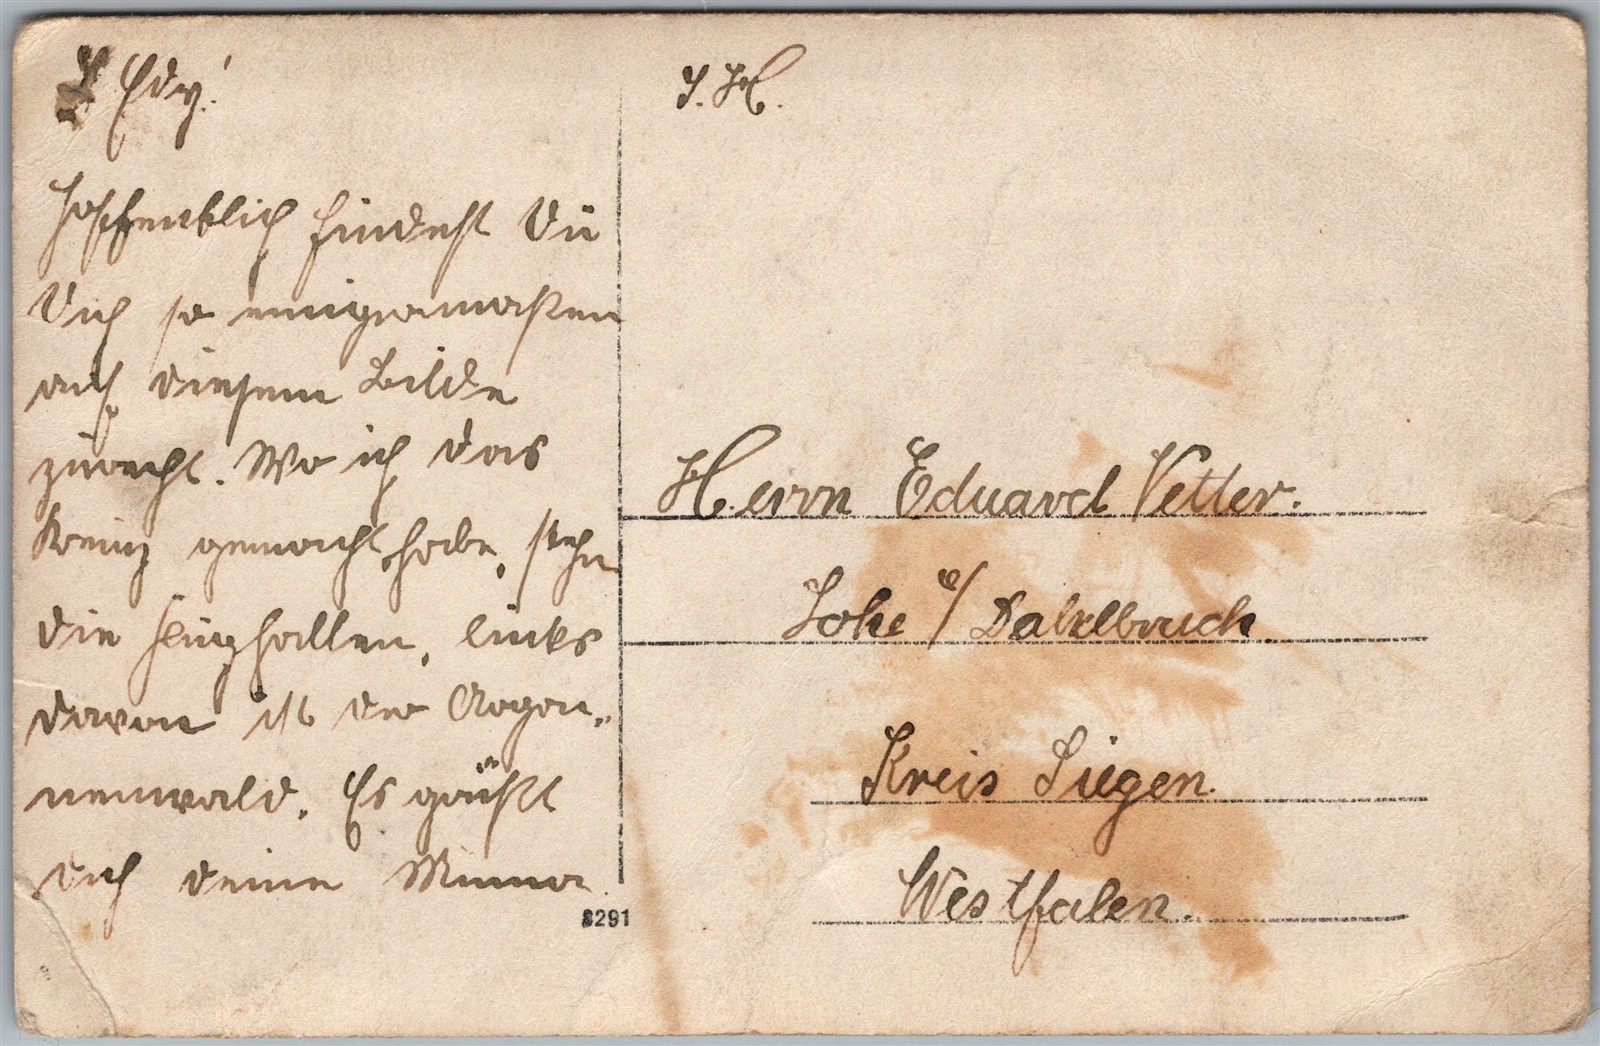 L. Edy!
Hoffentlich findest Du
Dich so einigermaßen
auf diesem Bilde
zurecht. Wo ich das
Kreuz gemacht habe, stehn
die Flughallen, links
davon ist der Argon-
nenwald. Es grüßt
dich deine Minna.
8291
S. H.
Herrn Eduard Vetter.
Lohe b/ Dahlbruch.
Kreis Siegen.
Westfalen.